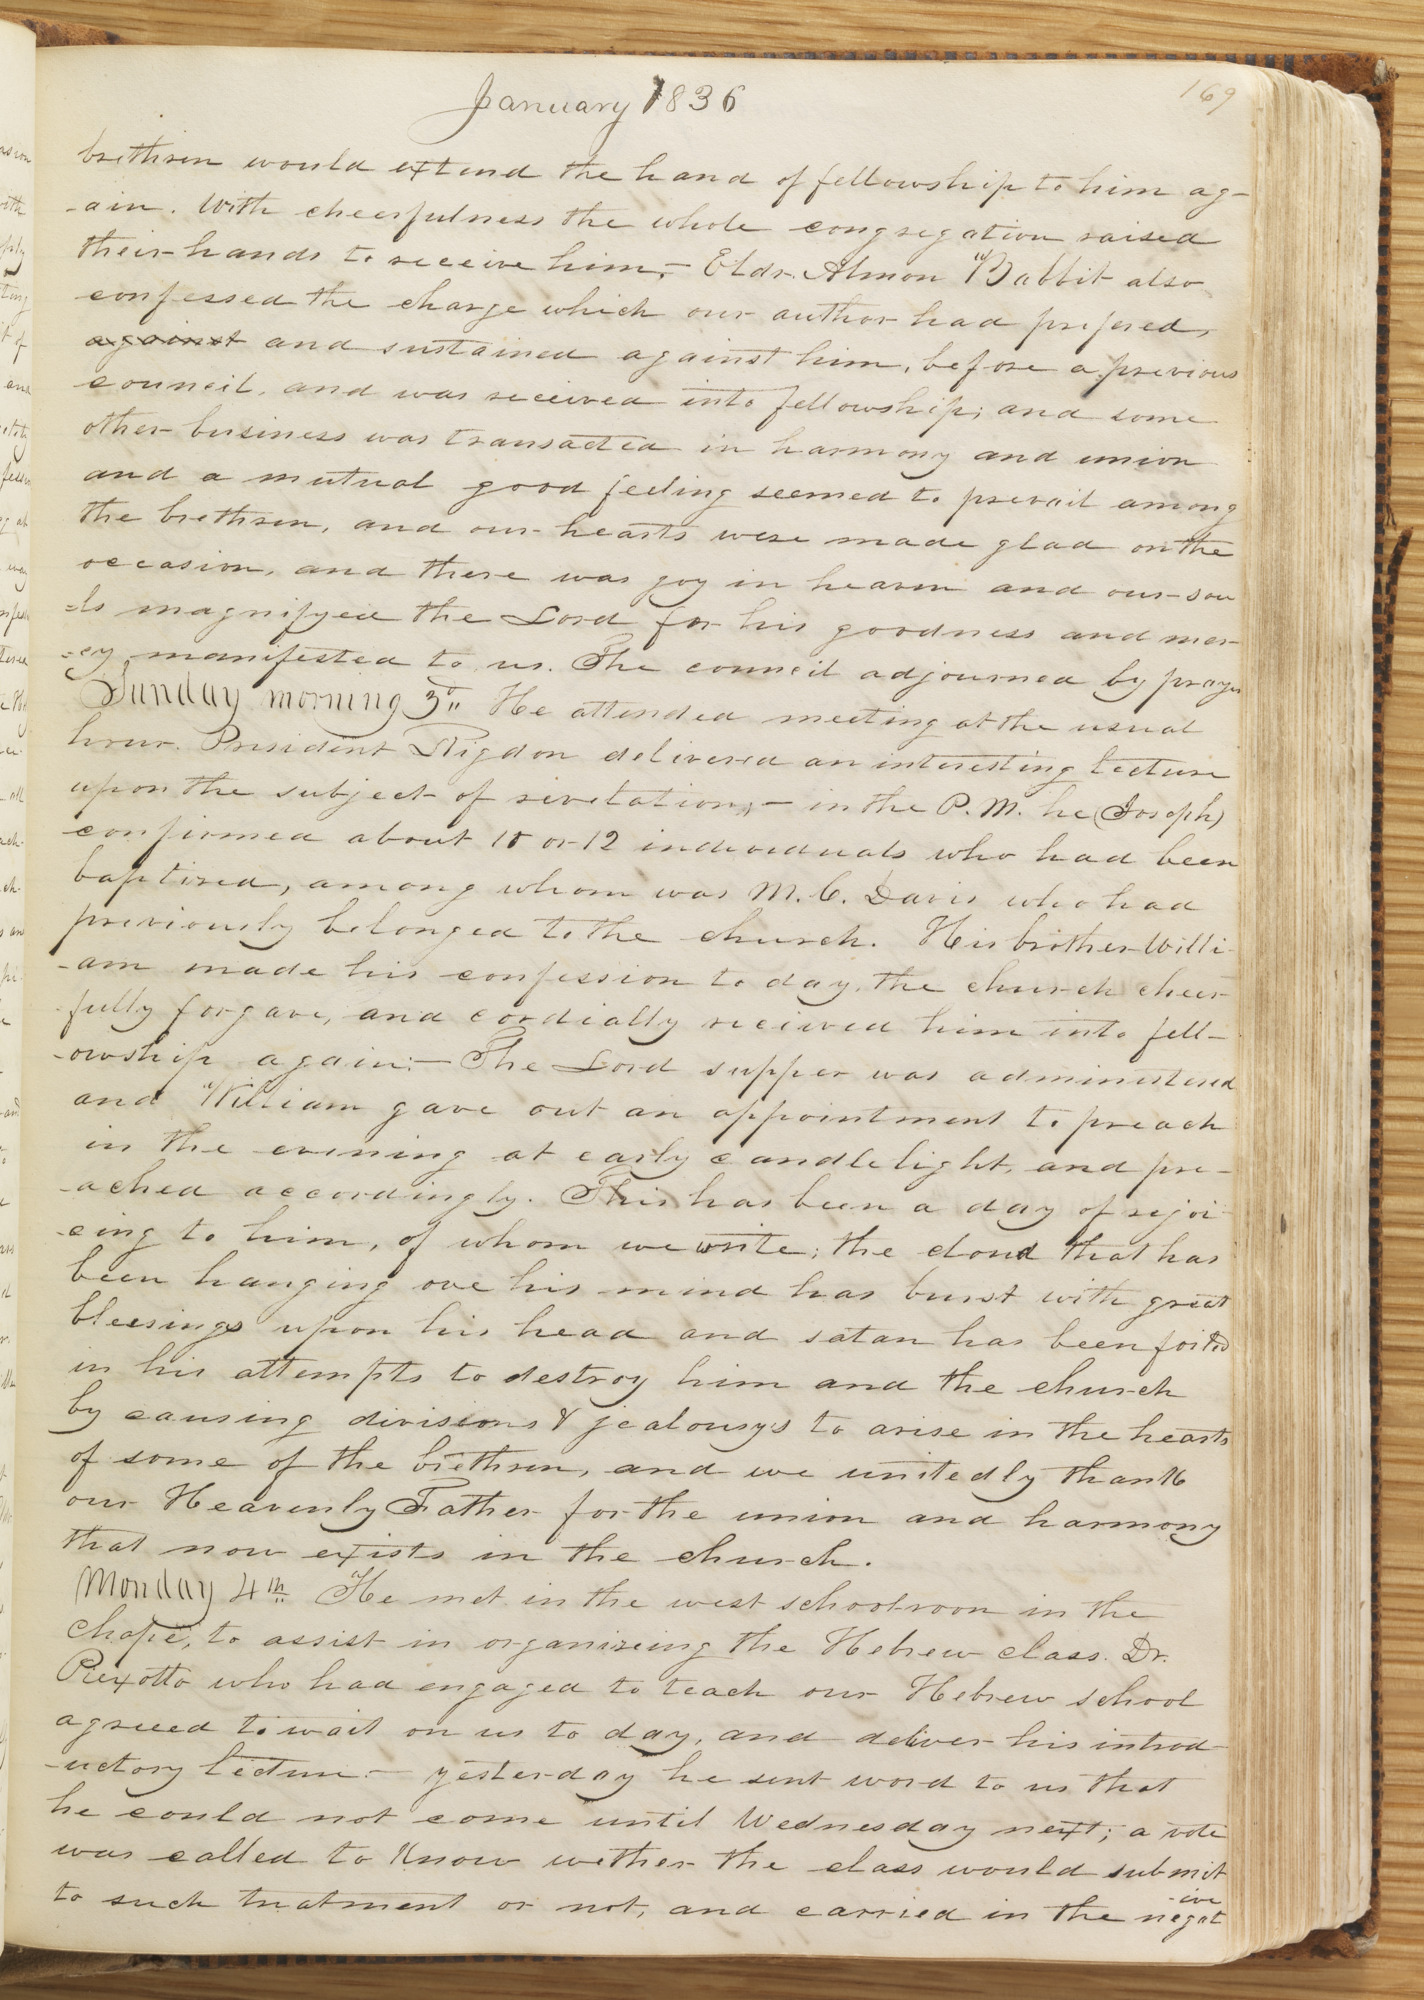 January 1836
169
brethren would extend the hand of fellowship to him ag-
-ain. With cheerfulness the whole congregation raised
their hands to receive him,- Eldr. Almon W Babbit also
confessed the charge which our author had prefered,
against and sustained against him, before a previous
council, and was received into fellowship; and some
other business was transacted in harmony and union
and a mutual good feeling seemed to prevail among
the brethren, and our hearts were made glad on the
occasion, and there was joy in heaven and our sou
=ls magnifyed the Lord for his goodness and mer-
=cy manifested to us. The council adjourned by prayer
Sunday morning 3d He attended meeting at the usual
hour. President S Rigdon delivered an interesting lecture
upon the subject of revelation,- in the P. M. he (Joseph)
confirmed about 10 or 12 individuals who had been
baptized, among whom was M. C. Davis who had
previously belonged to the church. His brother Willi-
-am made his confession to day, the church cheer-
-fully forgave, and cordially received him into fell-
-owship again:- The Lord supper was administered
and William gave out an appointment to preach
in the evening at early candlelight, and pre-
-ached accordingly. This has been a day of rejoi-
-cing to him, of whom we write; the cloud that has
been hanging ove his mind has burst with great
blessings upon his head and satan has been foiled
in his attempts to destroy him and the church
by causing divisions & jealousys to arise in the hearts
of some of the brethren, and we unitedly thank
our Heavenly Father for the union and harmony
that now exists in the church.
Monday 4th He met in the west schoolroon in the
Chapel, to assist in organizeing the Hebrew class. Dr.
Piexotto who had engaged to teach our Hebrew school
agreeed to wait on us to day, and deliver his introd-
-uctory lecture- yesterday he sent word to us that
he could not come until Wednesday next; a vote
was called to know wether the class would submit
to such treatment or not, and carried in the negat
-ive